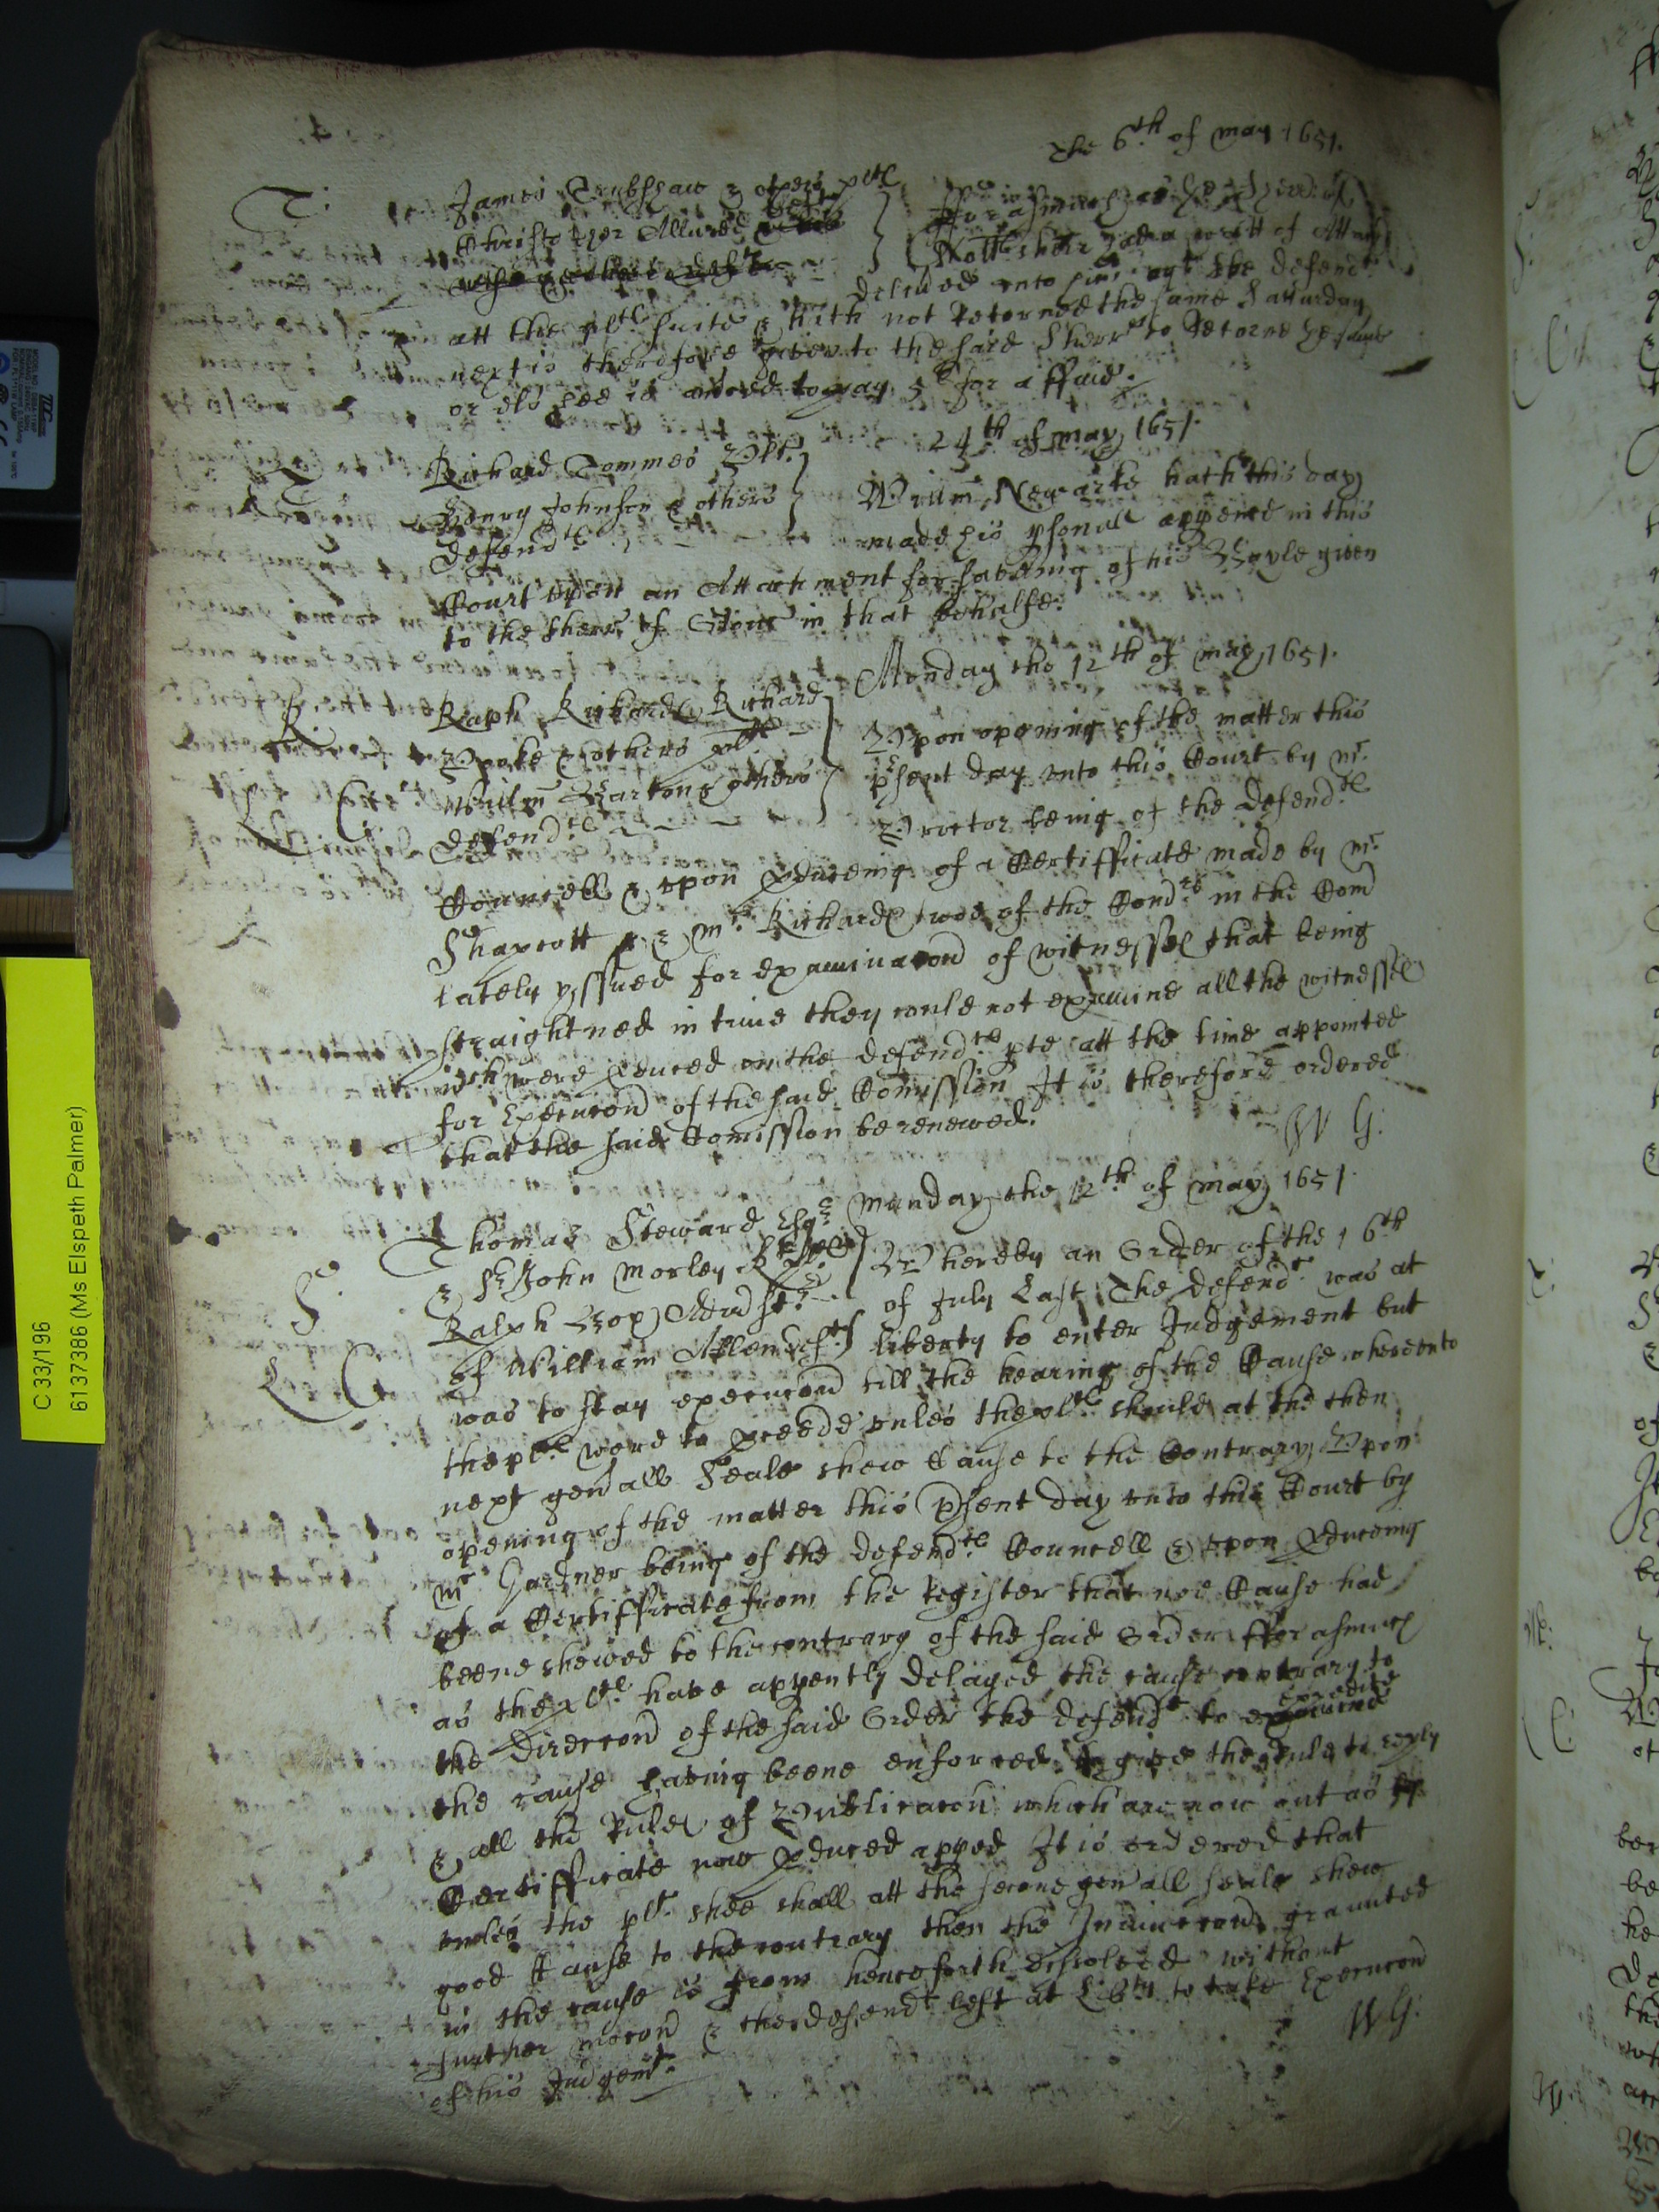 The 6th of may 1651.
T: James Trubshaw & others plts
Christopher Allured
fforasmuch as the sherr: of
Nott sheir had a writt of Attachmt
delivded unto him agt the defendt
att the plts suite & hath not Retorned the same Satturday
next is therefore given to the said Sherr to Retorne the same
or els hee is amced to pay 5li for a ffine.
24th of May 1651.
T Richard Tommes Plt.
Henry Johnson & others
defendts
Willm Newarke hath this day
made his psonall appence in this
Court upon an Attachment for saveing of his Bayle given
to the sherr of in that behalfe.
Monday the 12th of may 1651.
R Raph Rickards Richard
Poole & others plts
Willm Barton & others
defendts
Upon opening of the matter this
psent day unto this Court by mr.
Proctor being of the defendts
Councell & upon pduceing of a Certifficate made by mr.
Shapcott & mr. Richards two of the Comrs in the Com
lately yssued for examinacond of witnesses that being
straightned in time they could not examine all the witnesses
wch were pduced on the defendts pte att the time appointed
for Execucond of the said Comission It is therefore ordered
that the said Comission be renewed.
W G:
Monday the 12th of may 1651
S: Thomas Steward Esqr
& Sr John Morley plts
Ralph Box Admstr
of William Allen deft
Whereby an Order of the 16th
of July Last The defendt was at
liberty to enter Judgement but
was to stay execucond till the hearing of the Cause whereunto
the plts were to pceede unles the plts should at the then
next genall Seale shew Cause to the Contrary Upon
opening of the matter this psent day unto this Court by
mr Gardner being of the defendts Councell & upon pduceing
of a Certifficate from the Register that noe Cause had
beene shewed to the contrary of the said Order fforasmuch
as the plts have appently delayed the cause contrary to
the Direccond of the said Order the defendt to expedite
the cause having beene enforced to give the Rule to reply
& all the Rules of Publicacon which are now out as by
Certifficate now pduced apped It is ordered that
unles the plt. shee shall att the second genall seale shew
good Cause to the contrary then the Iniunccond graunted
in the cause is from henceforth dissolved without
further mocond & the defendt left at Libty to take Execucond
of his Judgemt.
W G:
C 33/196
6137386 (Ms Elspeth Palmer)